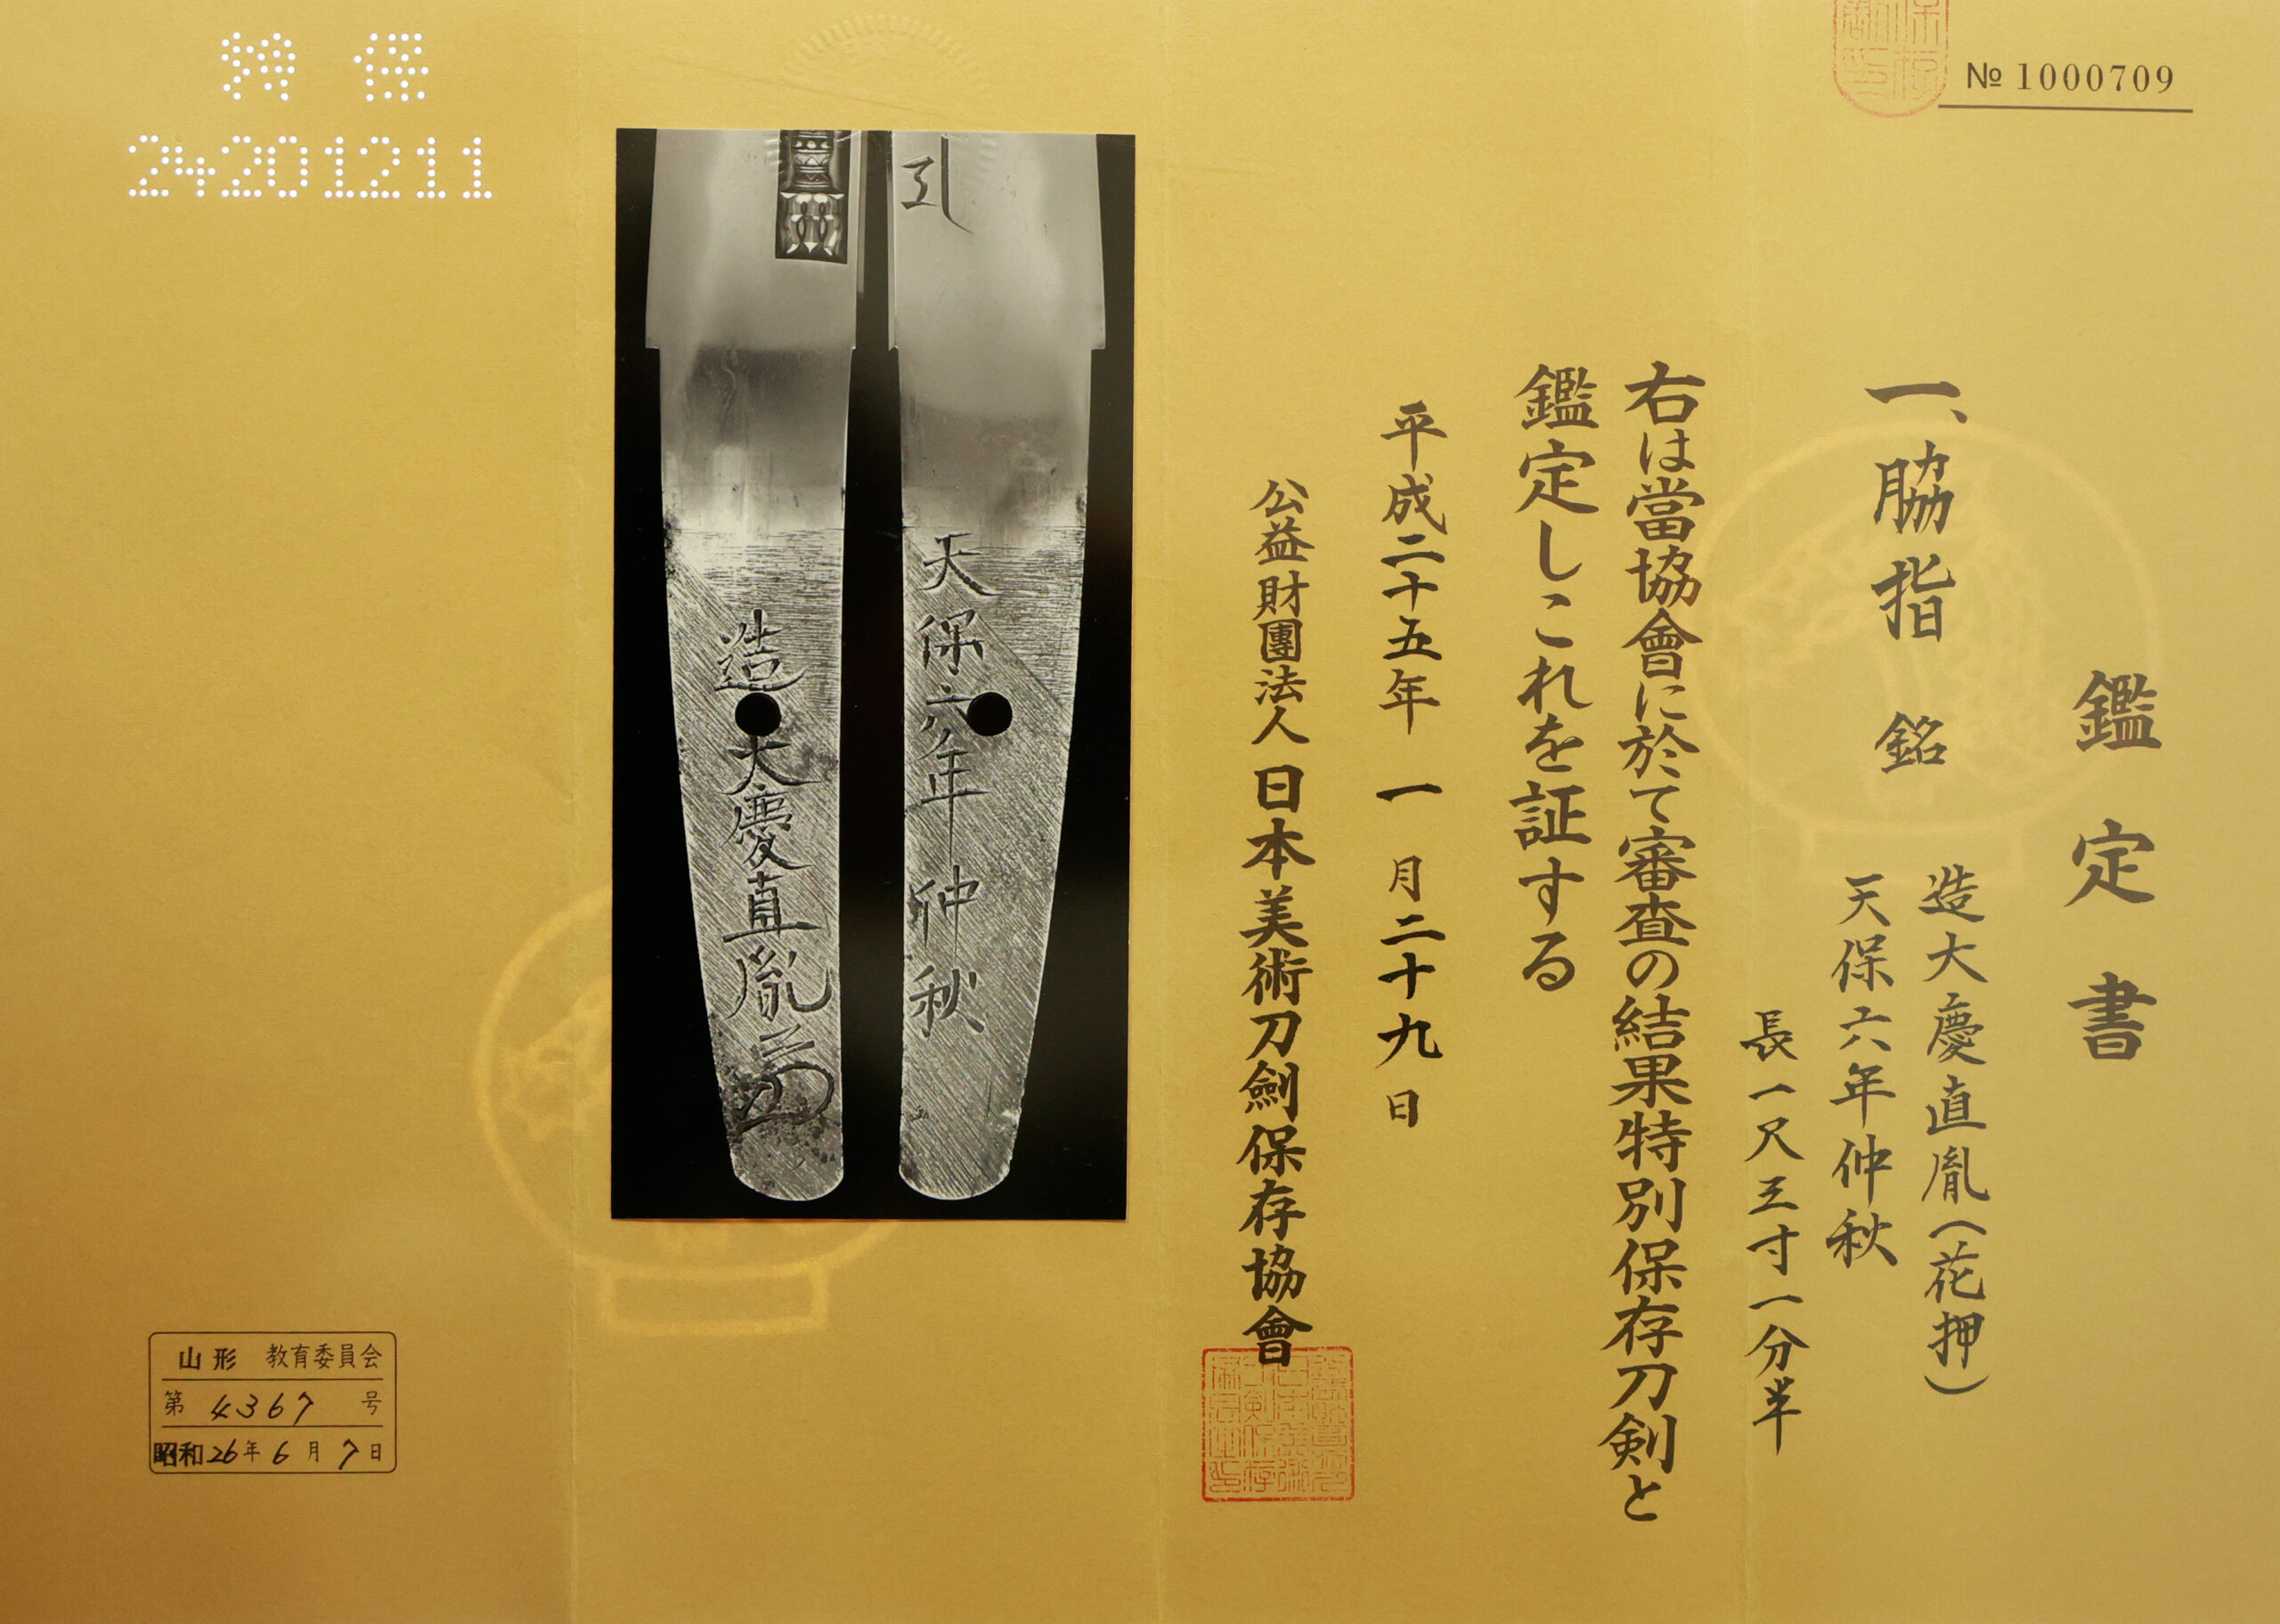 № 1000709
鑑定書
一、脇指 銘 造大慶直胤(花押)
天保六年仲秋
長一尺三寸一分半
右は當協會に於て審査の結果特別保存刀剣と
鑑定しこれを証する
平成二十五年一月二十九日
公益財團法人 日本美術刀劍保存協會
天保六年仲秋
造大慶直胤
特保
24201211
山形 教育委員会
第 4367 号
昭和26年6月7日